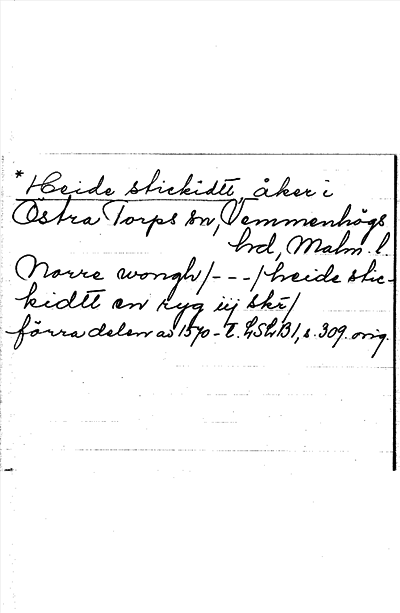 * Heide stickidtt, åker i
Östra Torps sn, Vemmenhögs
hd, Malm. l.
Norre wongh /---/ heide stic-
kidtt en ryg iij ske/
förra delen av 1570-t. LSLB1, s. 309. orig.